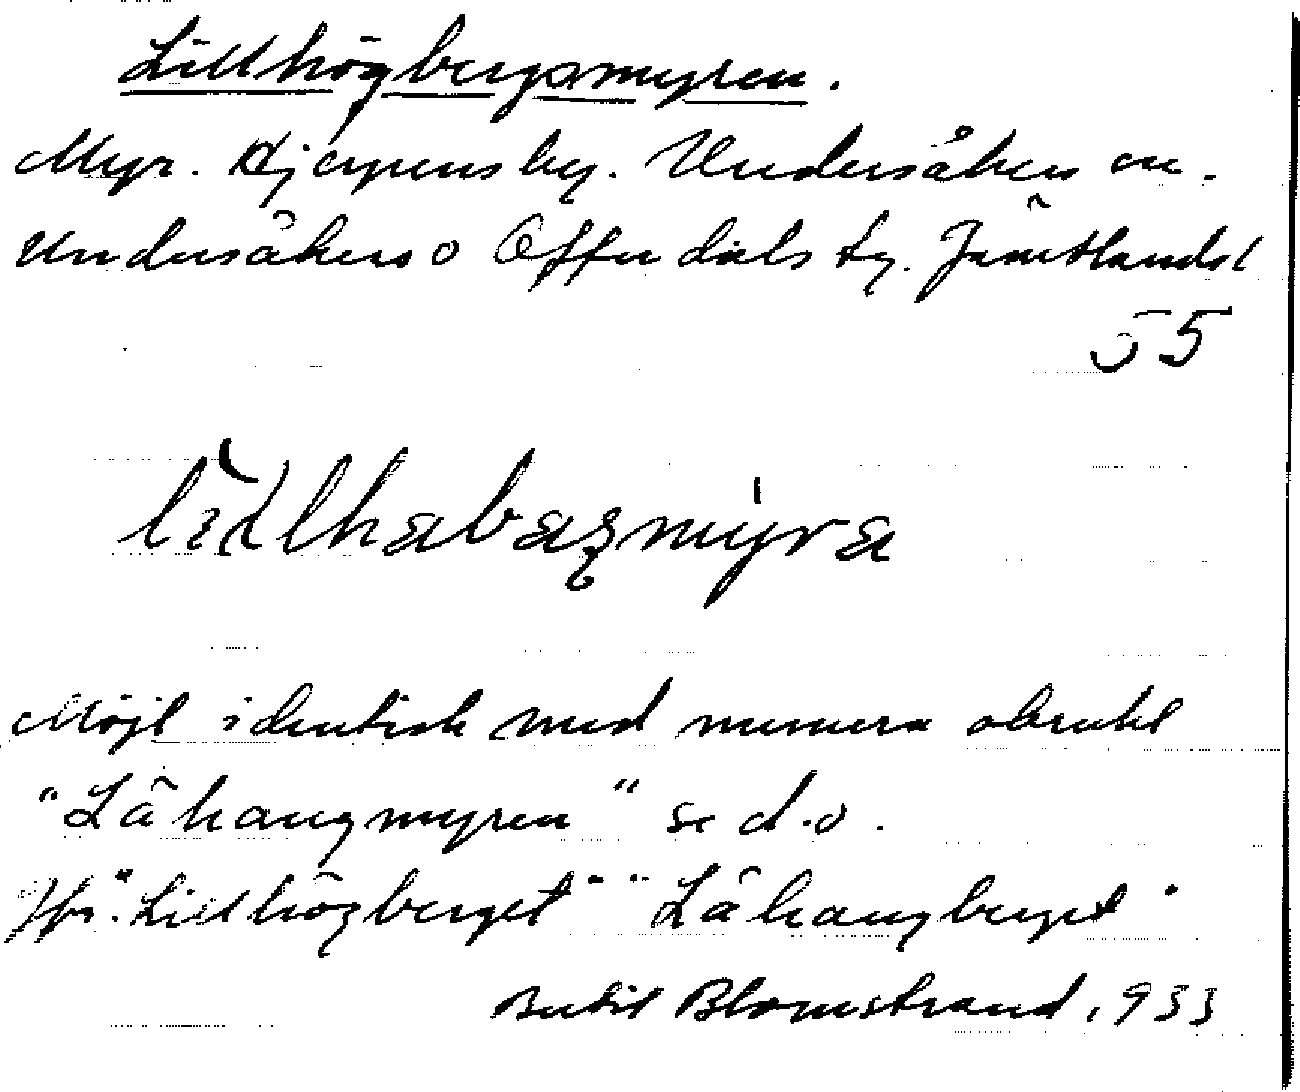 Lillhögbergsmyren.
Myr. Hjerpens by. Undersåkers sn.
Undersåkers o Offerdals tg. Jämtlands l
55
Möjl identisk med numera obrukl
"Låhaugmyren" se d.o.
Jfr. "Lillhögberget" "Låhaugberget"
Bertil Blomstrand, 933